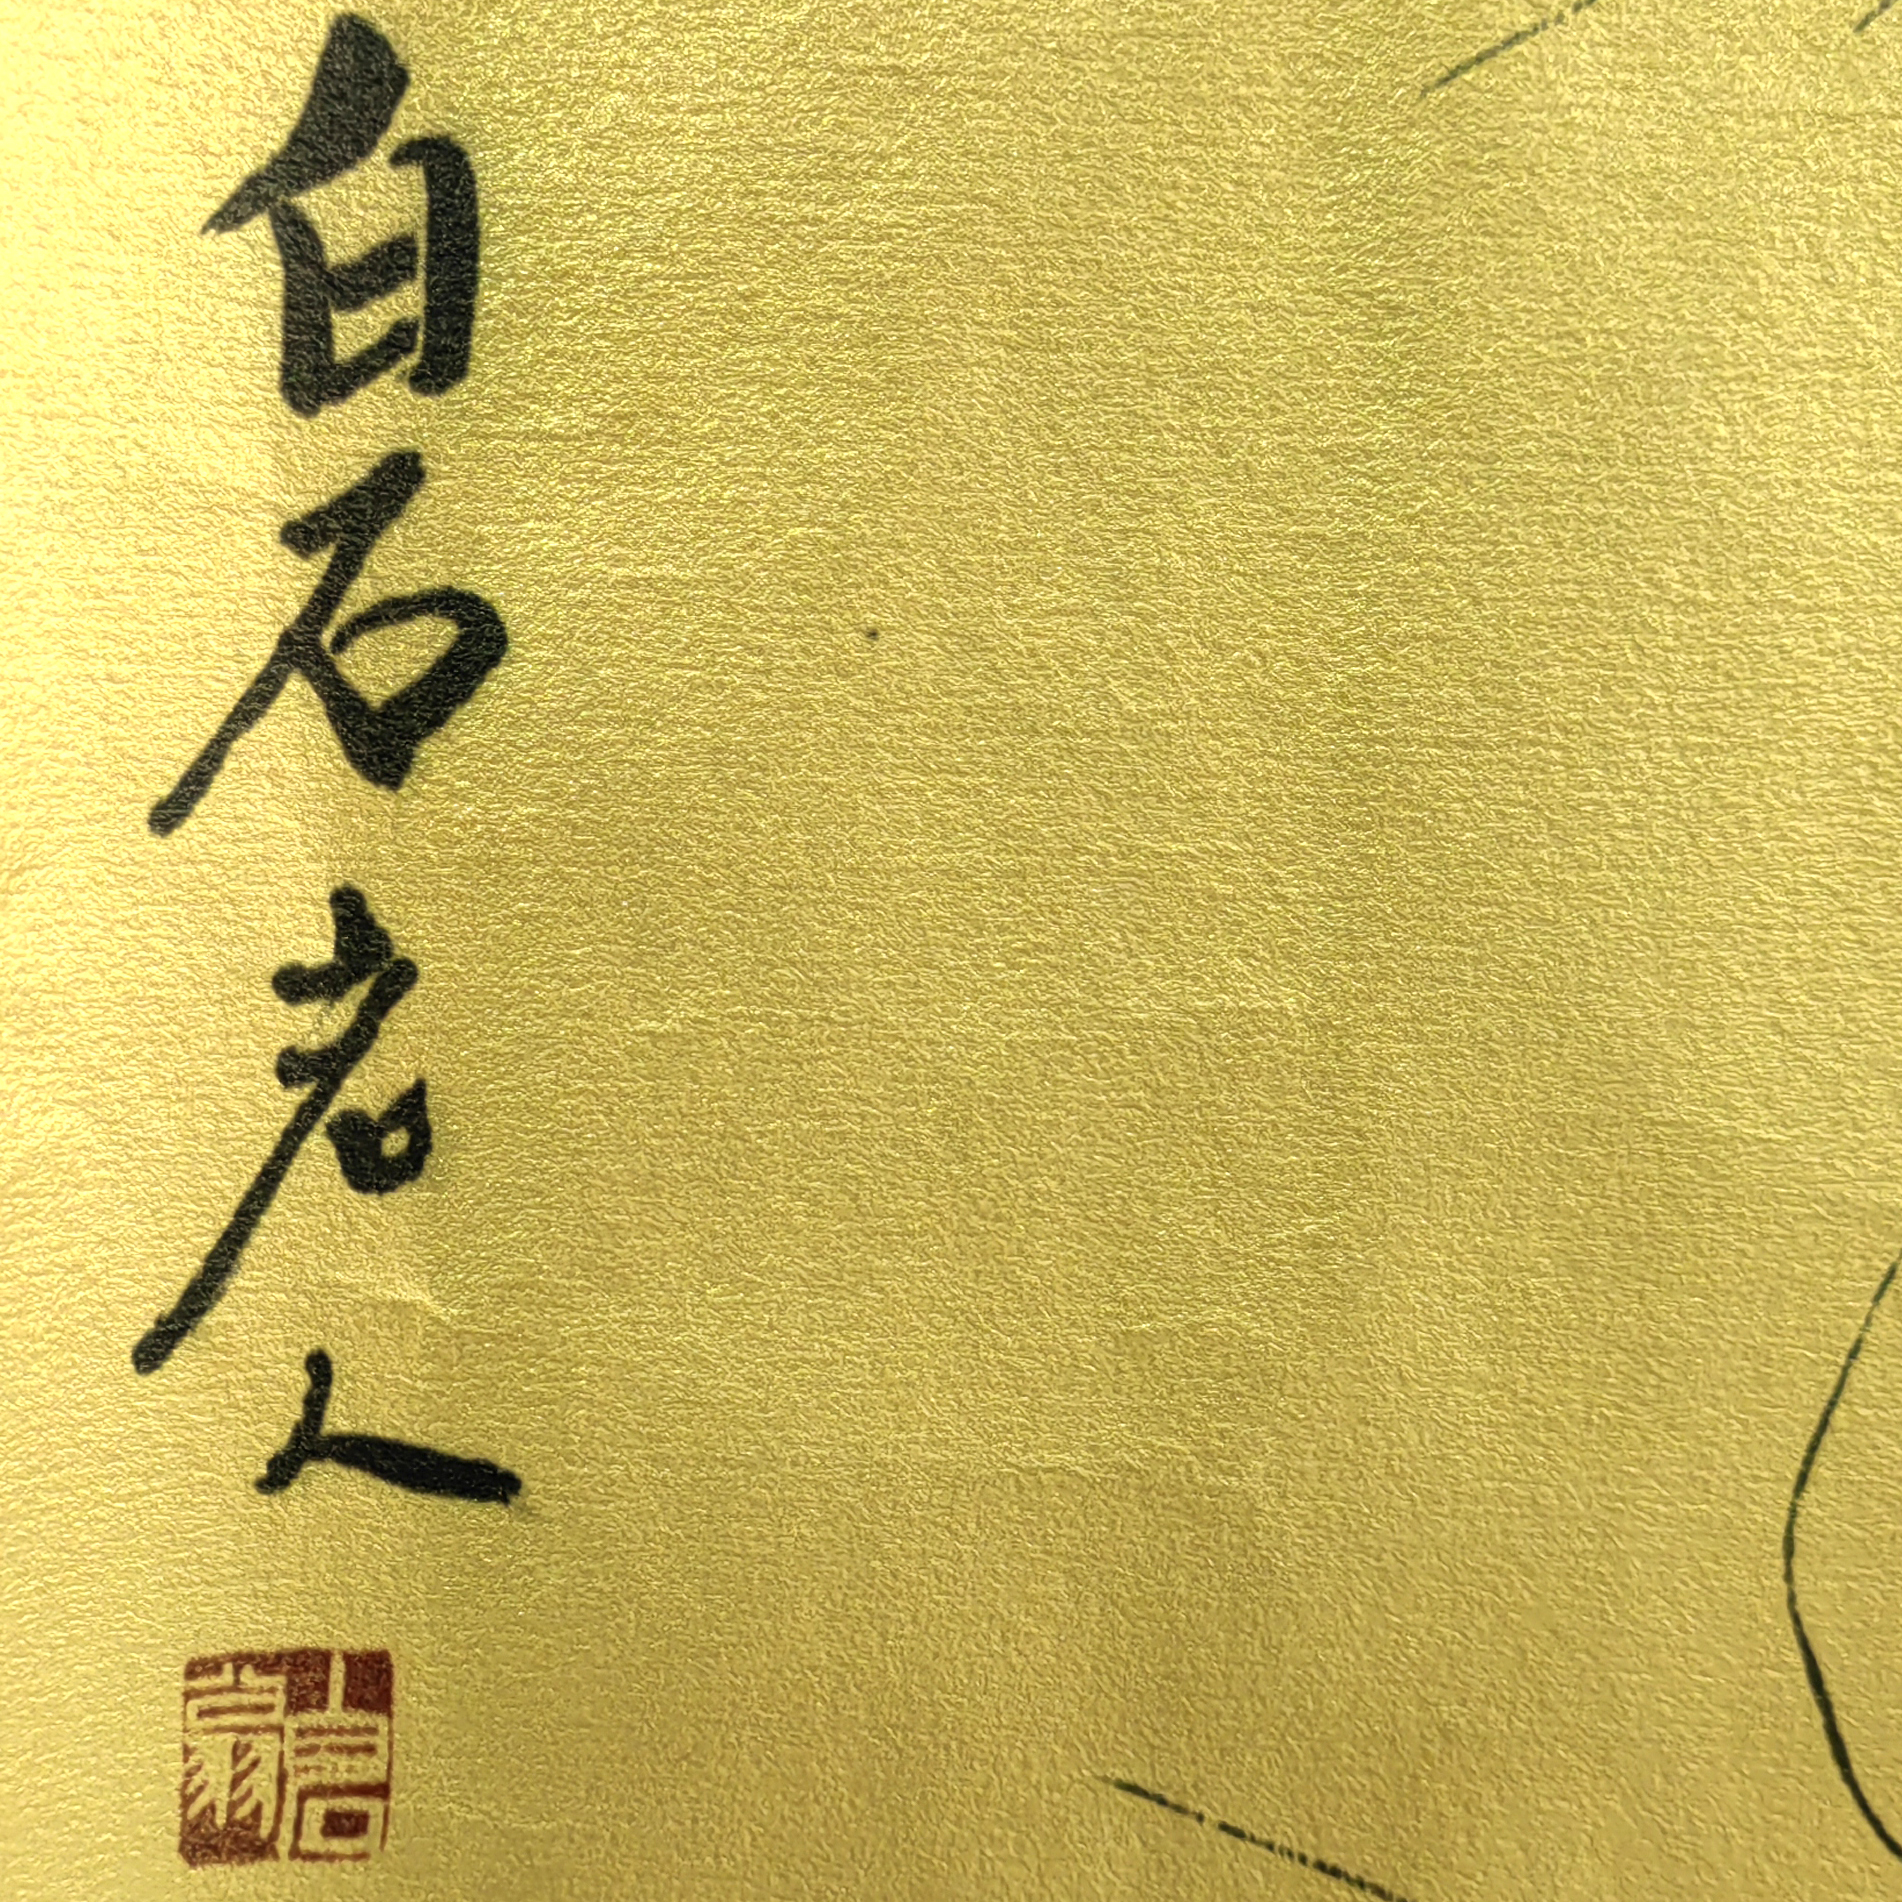 白石老人